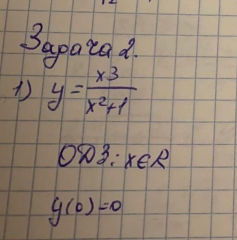 Задача 2.
1) y = x3 / x²+1
ОДЗ: x∈R
y(0)=0